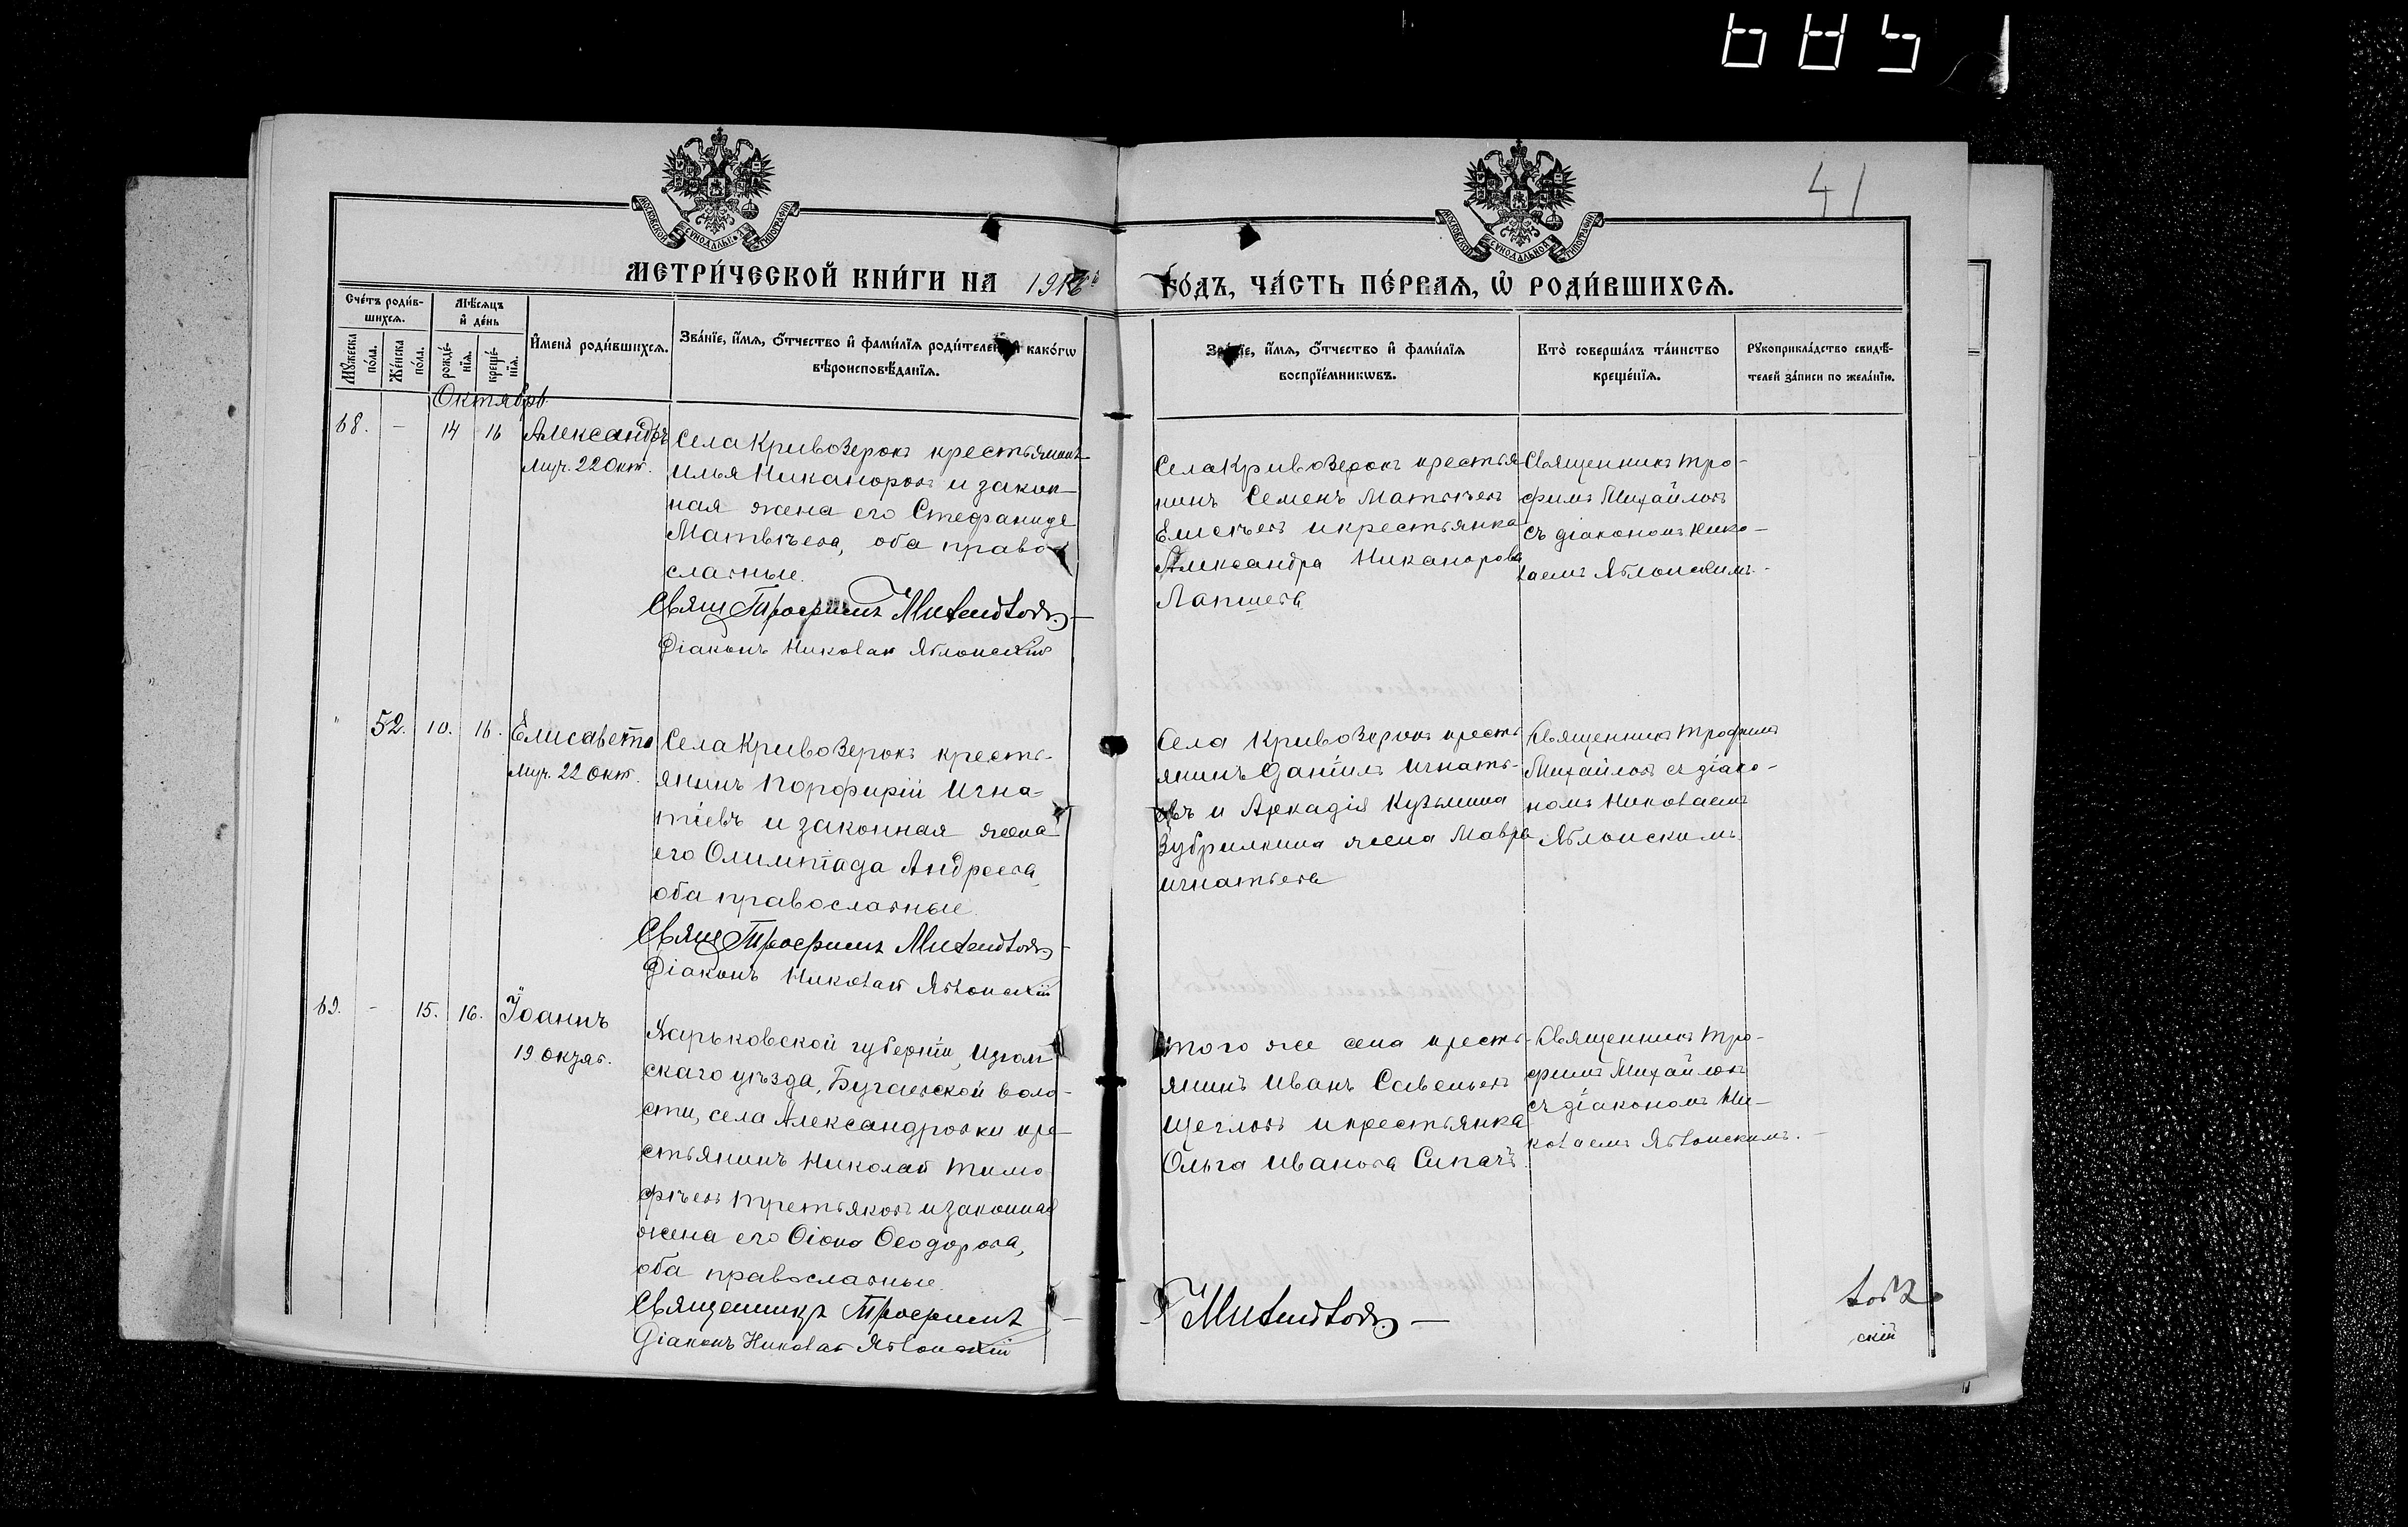 41
МОСКОВСКОЙ СѴНОДАЛЬНОЙ ТИПОГРАФІИ
МОСКОВСКОЙ СѴНОДАЛЬНОЙ ТИПОГРАФІИ
МЕТРИ́ЧЕСКОЙ КНИ́ГИ НА 1916
ГО́ДЪ, ЧА́СТЬ ПЕ́РВАѦ, Ѡ҆ РОДИ́ВШИХСѦ.
Сче́тъ роди́в-
шихсѧ.
Мѣ́сѧцъ
и҆ де́нь
Мꙋ́жеска
по́ла.
Же́нска
по́ла.
рожде́-
нїѧ.
креще́-
нїѧ.
И҆мена̀ роди́вшихсѧ.
Зва́нїе, и҆́мѧ, ѻ҆́тчество и҆ фами́лїѧ роди́телей и҆ како́гѡ
вѣроисповѣ́данїѧ.
Зва́нїе, и҆́мѧ, ѻ҆́тчество и҆ фами́лїѧ
воспрїе́мникѡвъ.
Кто̀ соверша́лъ та́инство
креще́нїѧ.
Рꙋкоприкла́дство свидѣ́-
телей за́писи по жела́нїю.
Октябрь.
68. - 14 16 Александръ
Муч. 22 Окт.
Села Кривозерокъ крестьянинъ
Илья Никаноровъ и закон-
ная жена его Стефанида
Матвѣева, оба право-
славные.
Свящ Трофимъ Михайловъ
Діаконъ Николай Яблонскій
Села Кривозерокъ крестья-
нинъ Семенъ Матвѣевъ
Елисѣевъ и крестьянка
Александра Никанорова
Лапшева
Священникъ Тро-
фимъ Михайловъ
съ діакономъ Нико-
лаемъ Яблонскимъ.
" 52. 10. 16. Елисавета
Муч. 22 Окт.
Села Кривозерокъ кресть-
янинъ Порфирій Игна-
тіевъ и законная жена
его Олимпіада Андреева,
оба православные.
Свящ Трофимъ Михайловъ
Діаконъ Николай Яблонскій
Села Кривозерокъ кресть-
янинъ Даніилъ Игнать-
евъ и Аркадія Кузьмина
Зубрилкина жена Мавра
Игнатьева
Священникъ Трофимъ
Михайловъ съ діако-
номъ Николаемъ
Яблонскимъ.
69. - 15. 16. Іоаннъ
19 Октяб.
Харьковской губерніи, Изюм-
скаго уѣзда, Бугаевской воло-
сти, села Александровки кре-
стьянинъ Николай Тимо-
фѣевъ Третьяковъ и законная
жена его Ѳіона Ѳеодорова,
оба православные.
Священникъ Трофимъ
Діаконъ Николай Яблонскій
того же села кресть-
янинъ Иванъ Савельевъ
Щегловъ и крестьянка
Ольга Иванова Сипачъ.
Священникъ Тро-
фимъ Михайловъ
съ діакономъ Ни-
колаемъ Яблонскимъ.
Михайловъ
ловъ
скій